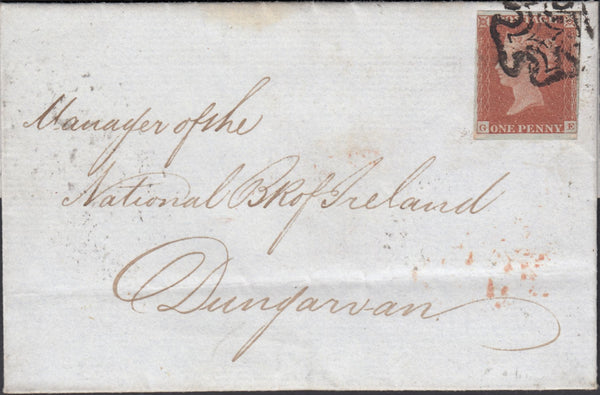 POSTAGE
G E
ONE PENNY
Manager of the
National Bk of Ireland
Dungarvan